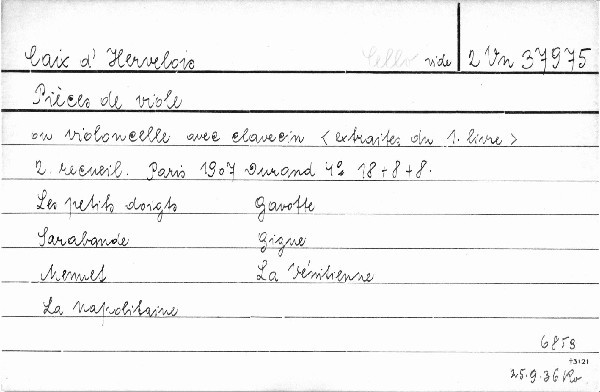 Caix d' Hervelois Cello vide 2 Vn 37975
Pièces de viole
ou violoncelle avec clavecin <extraites du 1. livre>
2. recueil. Paris 1907 Durand 4° 18+8+8.
Les petits doigts Gavotte
Sarabande Gigue
Menuet La Vénitienne
La Napolitaine
+3121
25.9.36